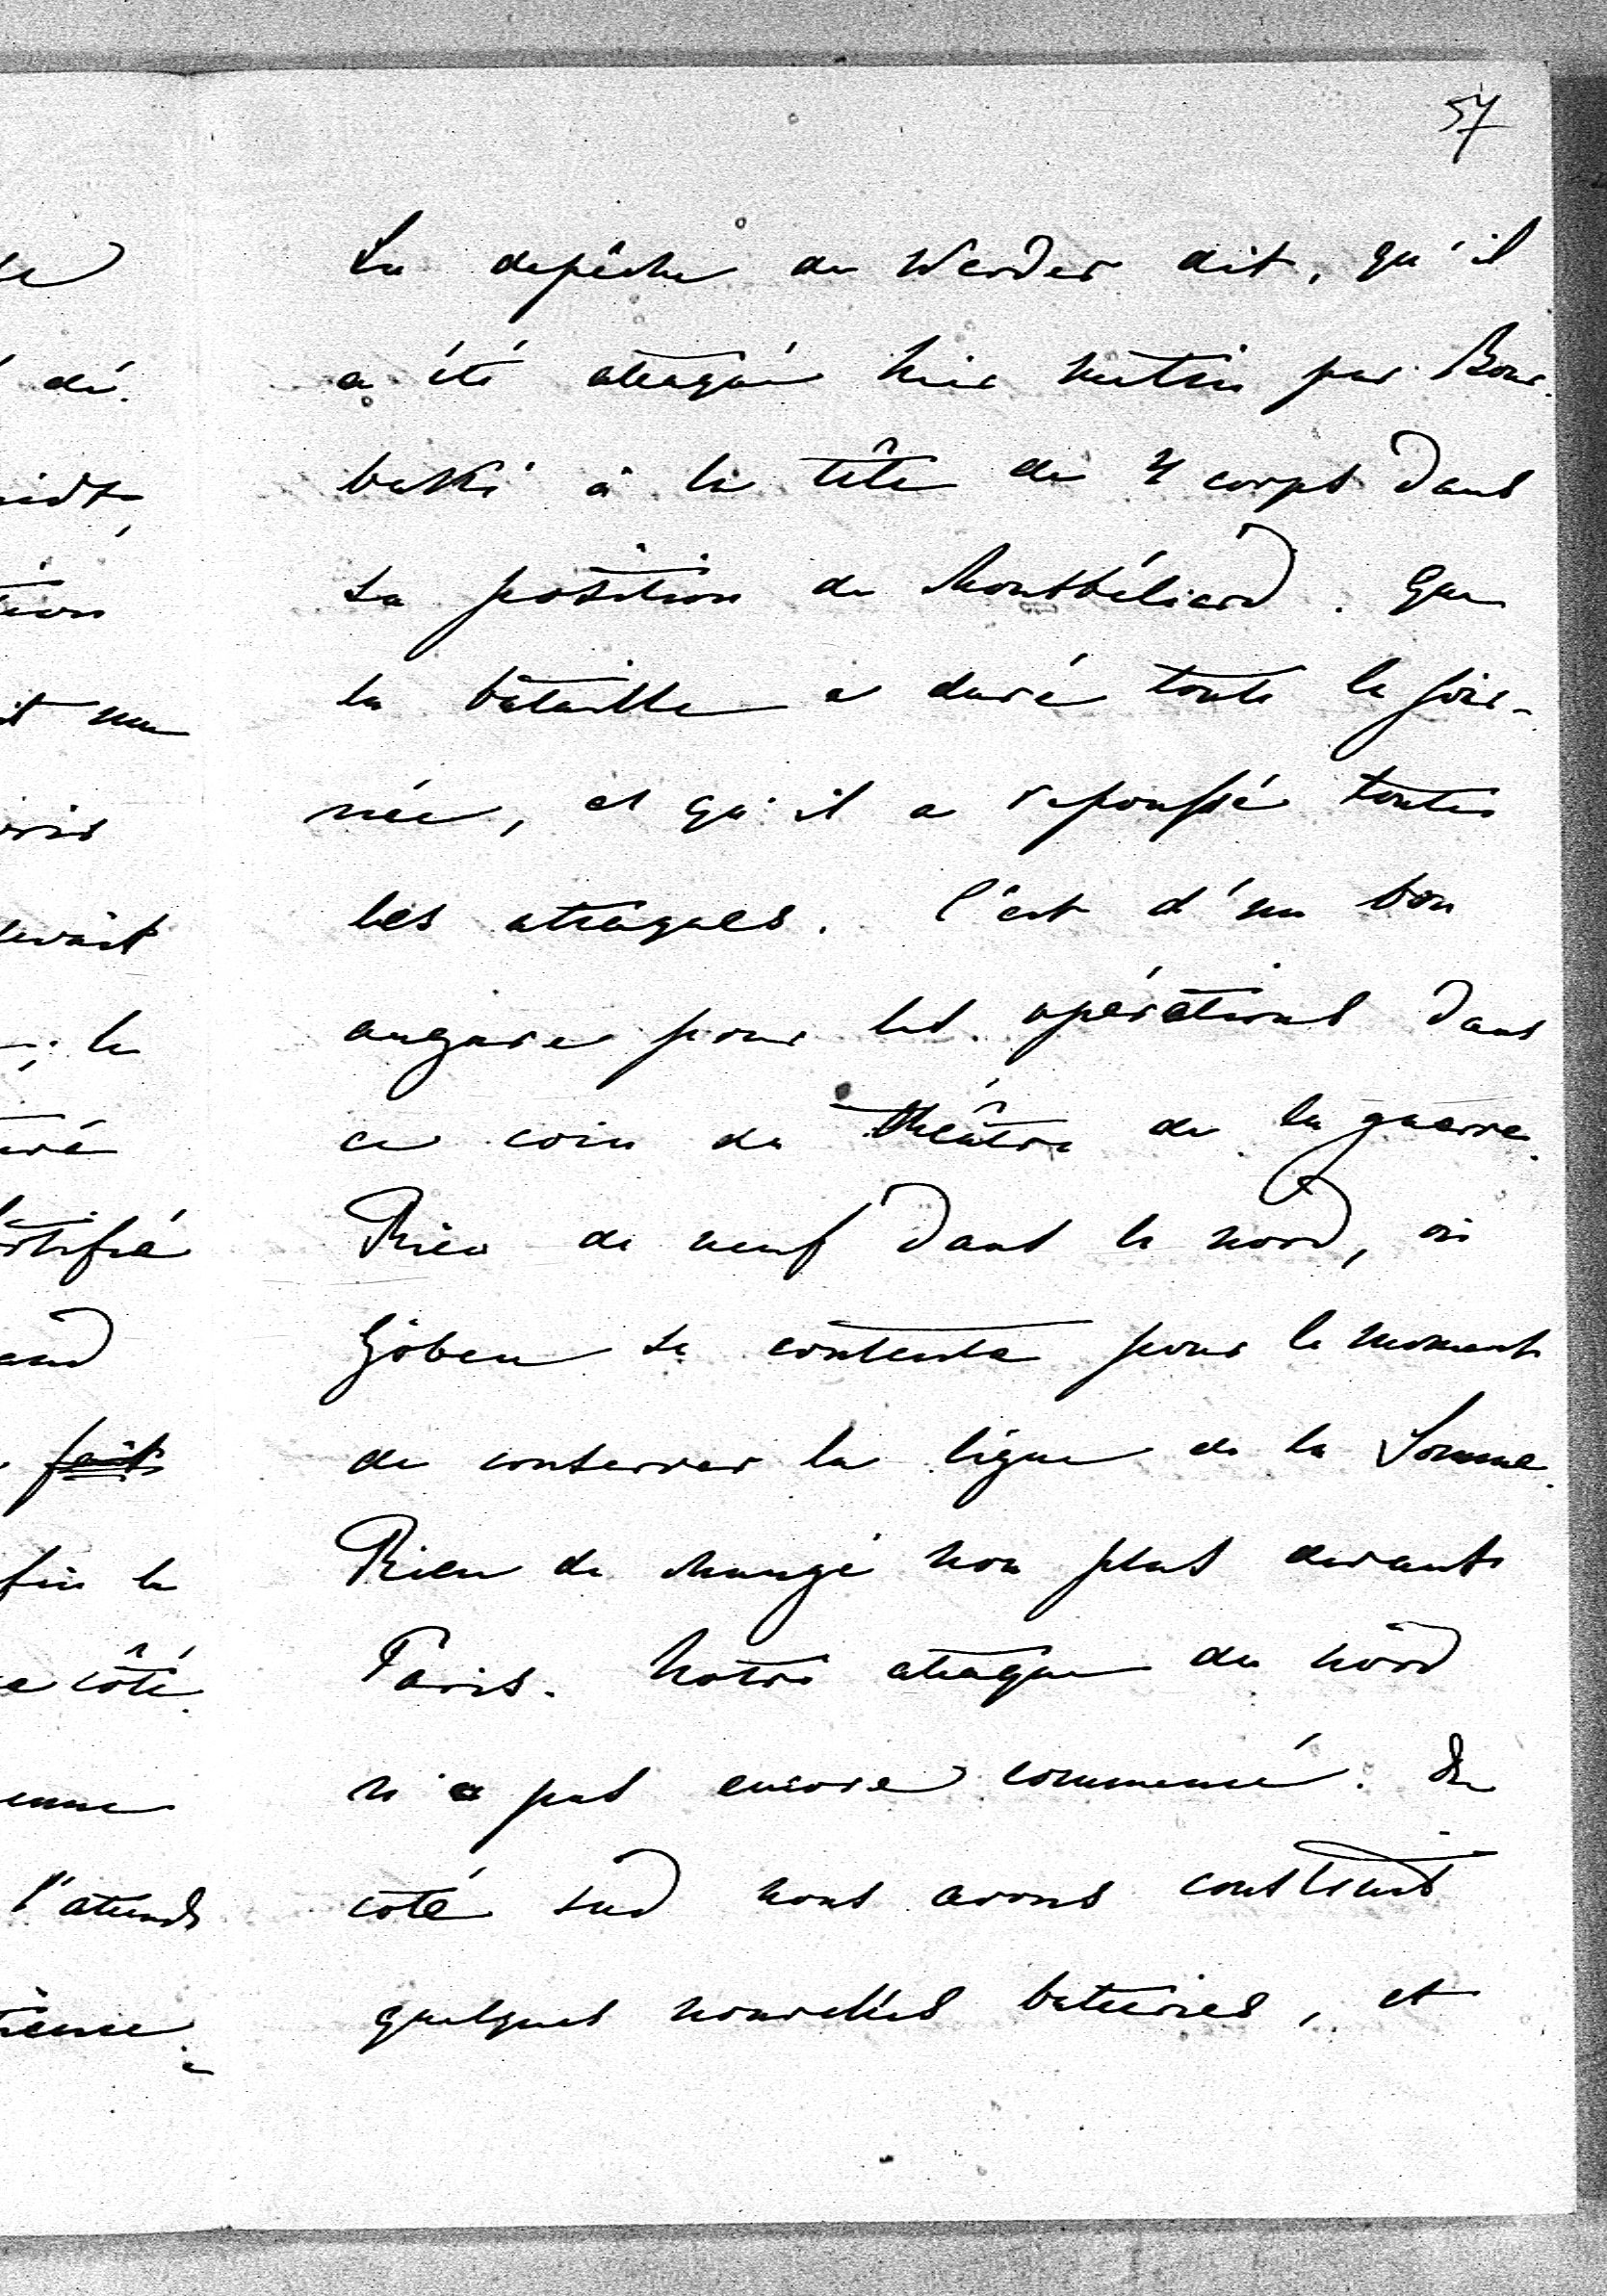 57
La depêche de Werder dit, qu'il
a été ataqué hier matin par Bour-
baki à la tête de 4 corps dans
sa position de Montbéliard. Que
la bataille a duré toute la jour-
née, et qu'il a repoussé toutes
les ataques. C'est d'un bon
augure pour les opérations dans
ce coin du théâtre de la guerre.
Rien de neuf dans le nord, où
Göben se contente pour le moment
de conserver la ligne de la Somme.
Rien de changé non plus devant
Paris. Notre ataque du nord
n'a pas encore commencé. Du
coté sud nous avons construit
quelques nouvelles bateries, et